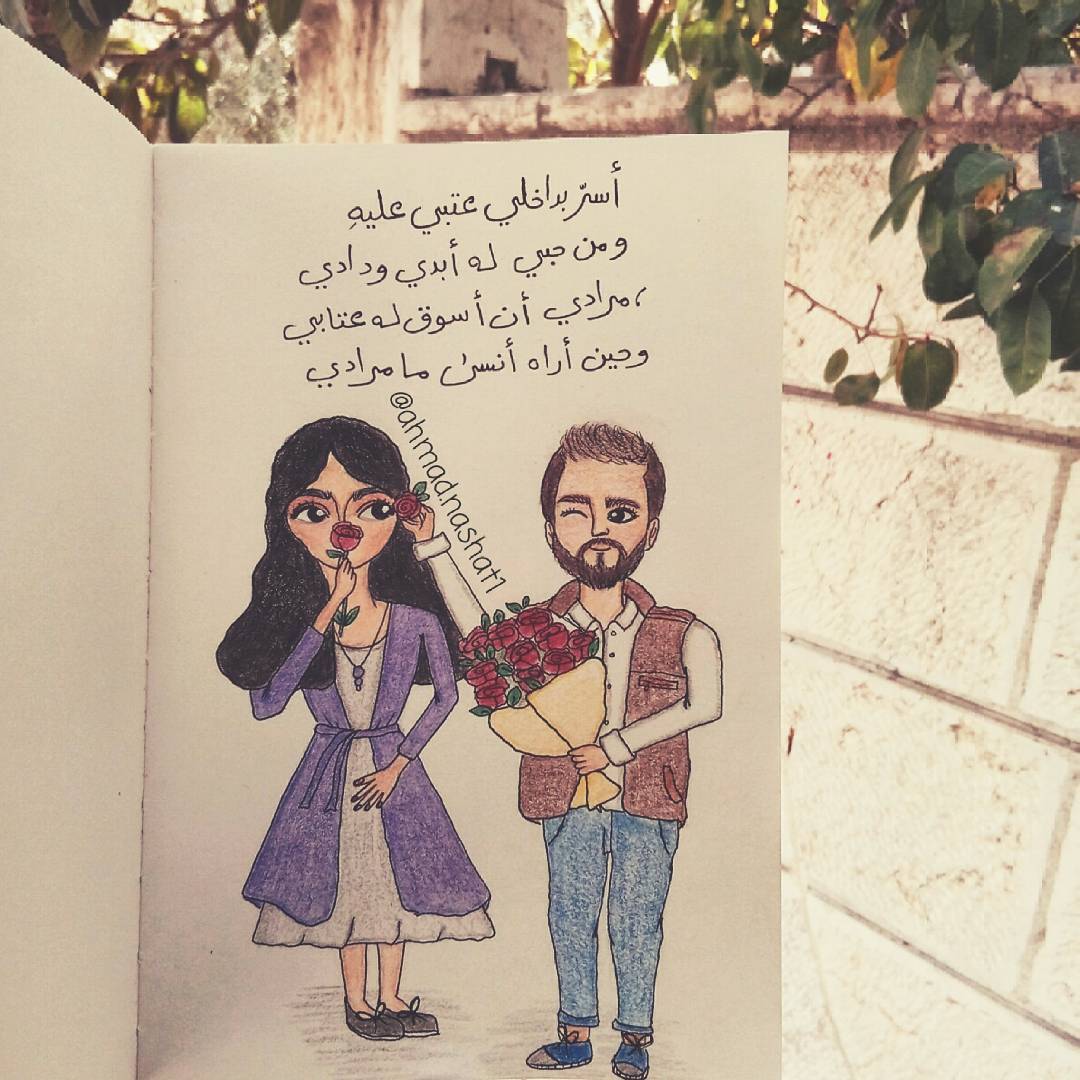 أسرّ بداخلي عتبي عليهِ
ومن حبي له أبدي ودادي
،مرادي أن أسوق له عتابي
وحين أراه أنسىٰ ما مرادي
@ahmad.nashat1